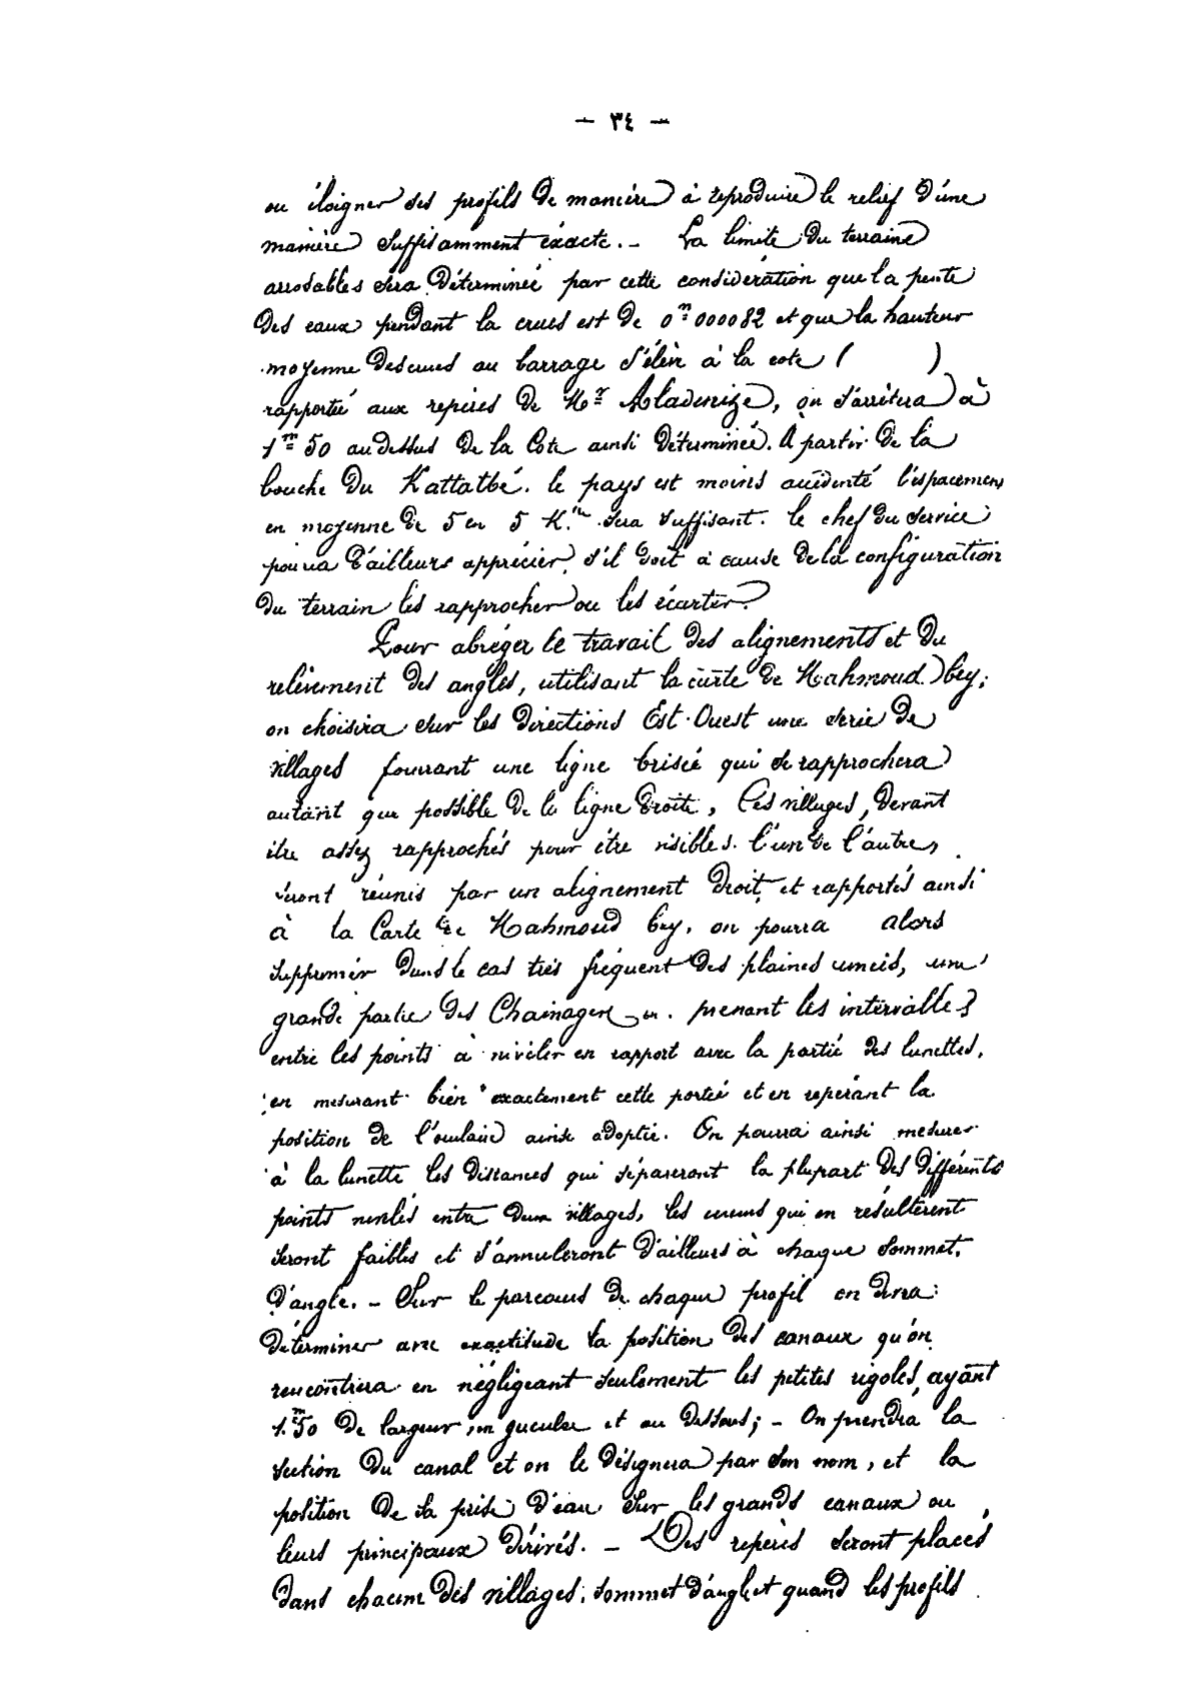 — ٣٤ —
ou éloigner des profils de manière à reproduire le relief d'une
manière suffisamment éxacte. — La limite du terraine
arrosables sera déterminée par cette considération que la pente
des eaux pendant la crues est de 0ᵐ000082 et que la hauteur
moyenne des crues au barrage s'élève à la cote (          )
rapportée aux repères de Mʳ Aladenize, on s'arrêtera à
1ᵐ50 au dessus de la Cote ainsi déterminée. A partir de la
bouche du Kattatbé. le pays est moins accidenté l'espacement
en moyenne de 5 en 5 K.ᵐ sera suffisant. le chef du service
pourra d'ailleurs apprécier s'il doit à cause de la configuration
du terrain les rapprocher ou les écarter.
Pour abréger le travail des alignements et du
relèvement des angles, utilisant la carte de Mahmoud bey,
on choisira sur les directions Est-Ouest une serie de
villages formant une ligne brisée qui se rapprochera
autant que possible de la ligne droite, Ces villages, devant
être assez rapprochés pour être visibles l'un de l'autre,
seront réunis par un alignement droit et rapportés ainsi
à la Carte de Mahmoud bey, on pourra alors
supprimer dans le cas très fréquent des plaines unies, une
grande partie des Chainages en prenant les intervalles
entre les points à niveler en rapport avec la portée des lunettes,
en mesurant bien exactement cette portée et en repérant la
position de l'oculaire ainsi adoptée. On pourra ainsi mesurer
à la lunette les distances qui sépareront la plupart des différents
points nivelés entre deux villages, les erreurs qui en résulteront
seront faibles et s'annuleront d'ailleurs à chaque sommet
d'angle. — Sur le parcours de chaque profil on devra
déterminer avec exactitude la position des canaux qu'on
rencontrera en négligeant seulement les petites rigoles ayant
1.ᵐ50 de largeur en gueule et au dessous; — On prendra la
section du canal et on le désignera par son nom, et la
position de sa prise d'eau sur les grands canaux ou
leurs principaux dérivés. — Des repères seront placés
dans chacun des villages, sommet d'angle et quand les profils